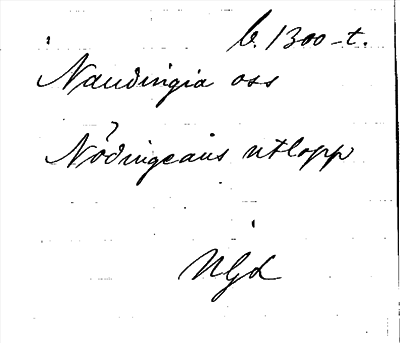 b. 1300-t.
Naudingia oss
Nödingeåns utlopp
NGL